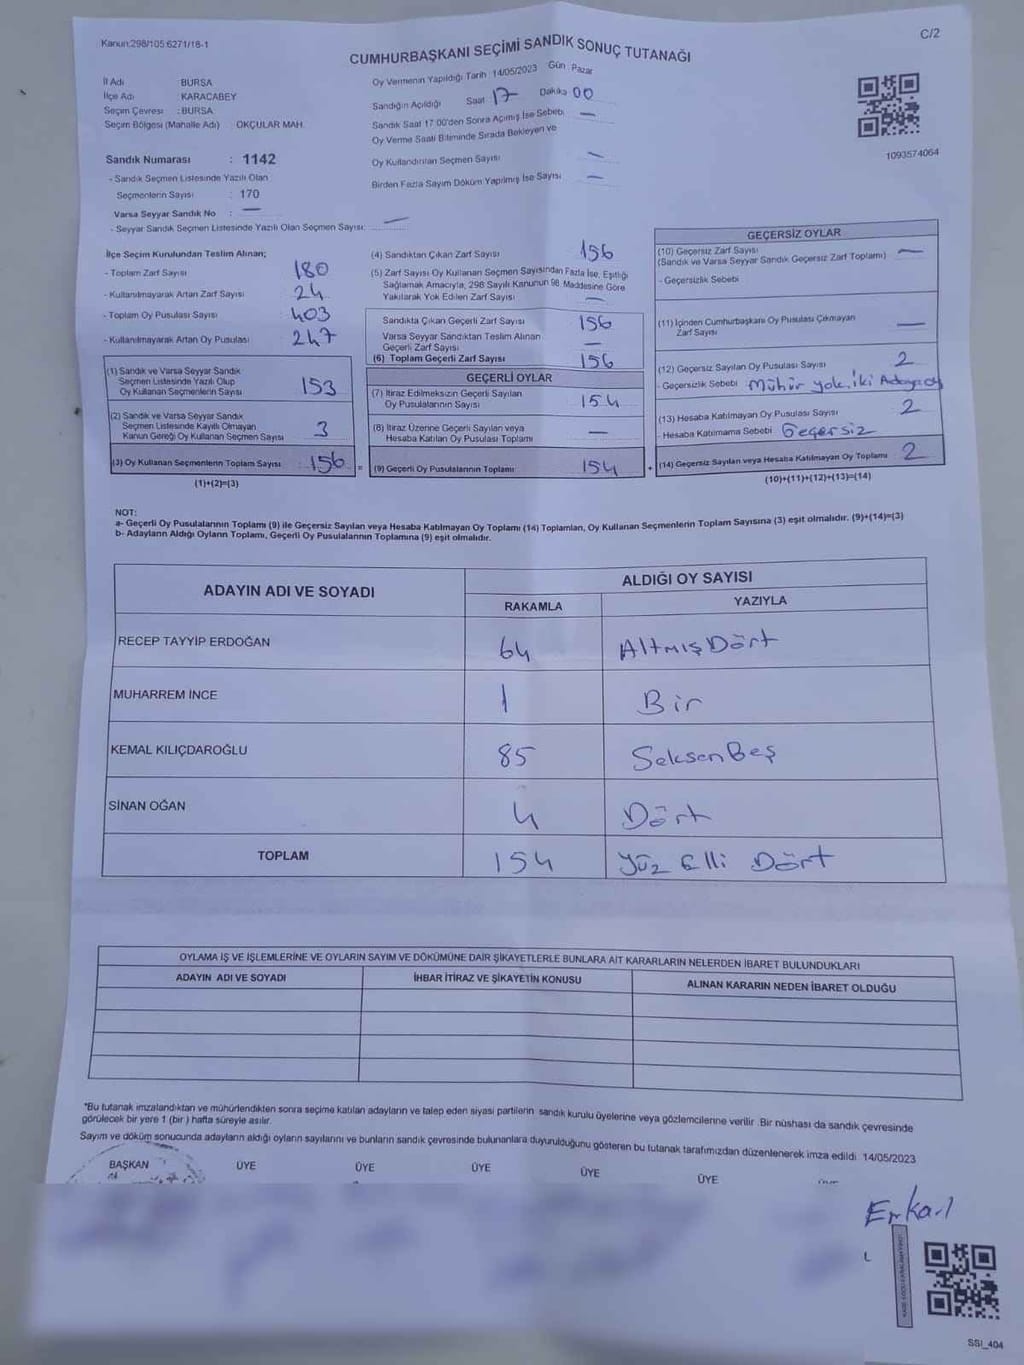 Kanun:298/105 6271/18-1
C/2
CUMHURBAŞKANI SEÇİMİ SANDIK SONUÇ TUTANAĞI
İl Adı BURSA
İlçe Adı KARACABEY
Seçim Çevresi : BURSA
Seçim Bölgesi (Mahalle Adı) : OKÇULAR MAH.
Sandık Numarası : 1142
- Sandık Seçmen Listesinde Yazılı Olan
Seçmenlerin Sayısı : 170
Varsa Seyyar Sandık No : —
- Seyyar Sandık Seçmen Listesinde Yazılı Olan Seçmen Sayısı: —
Oy Vermenin Yapıldığı Tarih : 14/05/2023 Gün : Pazar
Sandığın Açıldığı Saat 17 Dakika 00
Sandık Saat 17.00'den Sonra Açımış İse Sebebi —
Oy Verme Saati Bitiminde Sırada Bekleyen ve
Oy Kullandırılan Seçmen Sayısı —
Birden Fazla Sayım Döküm Yapılmış İse Sayısı —
1093574064
İlçe Seçim Kurulundan Teslim Alınan;
- Toplam Zarf Sayısı 180
- Kullanılmayarak Artan Zarf Sayısı : 24
- Toplam Oy Pusulası Sayısı : 403
- Kullanılmayarak Artan Oy Pusulası : 247
(1) Sandık ve Varsa Seyyar Sandık
Seçmen Listesinde Yazılı Olup
Oy Kullanan Seçmenlerin Sayısı : 153
(2) Sandık ve Varsa Seyyar Sandık
Seçmen Listesinde Kayıtlı Olmayan
Kanun Gereği Oy Kullanan Seçmen Sayısı : 3
(3) Oy Kullanan Seçmenlerin Toplam Sayısı : 156
(1)+(2)=(3)
(4) Sandıktan Çıkan Zarf Sayısı 156
(5) Zarf Sayısı Oy Kullanan Seçmen Sayısından Fazla İse, Eşitliği
Sağlamak Amacıyla, 298 Sayılı Kanunun 98. Maddesine Göre
Yakılarak Yok Edilen Zarf Sayısı —
Sandıkta Çıkan Geçerli Zarf Sayısı 156
Varsa Seyyar Sandıktan Teslim Alınan
Geçerli Zarf Sayısı —
(6) Toplam Geçerli Zarf Sayısı 156
GEÇERLİ OYLAR
(7) İtiraz Edilmeksizin Geçerli Sayılan
Oy Pusulalarının Sayısı 154
(8) İtiraz Üzerine Geçerli Sayılan veya
Hesaba Katılan Oy Pusulası Toplamı —
= (9) Geçerli Oy Pusulalarının Toplamı 154
GEÇERSİZ OYLAR
(10) Geçersiz Zarf Sayısı
(Sandık ve Varsa Seyyar Sandık Geçersiz Zarf Toplamı) —
- Geçersizlik Sebebi
(11) İçinden Cumhurbaşkanı Oy Pusulası Çıkmayan
Zarf Sayısı —
(12) Geçersiz Sayılan Oy Pusulası Sayısı 2
- Geçersizlik Sebebi Mühür yok, iki
(13) Hesaba Katılmayan Oy Pusulası Sayısı 2
- Hesaba Katılmama Sebebi Geçersiz
+ (14) Geçersiz Sayılan veya Hesaba Katılmayan Oy Toplamı 2
(10)+(11)+(12)+(13)=(14)
NOT:
a- Geçerli Oy Pusulalarının Toplamı (9) ile Geçersiz Sayılan veya Hesaba Katılmayan Oy Toplamı (14) Toplamları, Oy Kullanan Seçmenlerin Toplam Sayısına (3) eşit olmalıdır. (9)+(14)=(3)
b- Adayların Aldığı Oyların Toplamı, Geçerli Oy Pusulalarının Toplamına (9) eşit olmalıdır.
ADAYIN ADI VE SOYADI
ALDIĞI OY SAYISI
RAKAMLA YAZIYLA
RECEP TAYYİP ERDOĞAN 64 Altmış Dört
MUHARREM İNCE 1 Bir
KEMAL KILIÇDAROĞLU 85 Seksen Beş
SİNAN OĞAN 4 Dört
TOPLAM 154 Yüz Elli Dört
OYLAMA İŞ VE İŞLEMLERİNE VE OYLARIN SAYIM VE DÖKÜMÜNE DAİR ŞİKAYETLERLE BUNLARA AİT KARARLARIN NELERDEN İBARET BULUNDUKLARI
ADAYIN ADI VE SOYADI İHBAR İTİRAZ VE ŞİKAYETİN KONUSU ALINAN KARARIN NEDEN İBARET OLDUĞU
*Bu tutanak imzalandıktan ve mühürlendikten sonra seçime katılan adayların ve talep eden siyasi partilerin sandık kurulu üyelerine veya gözlemcilerine verilir. Bir nüshası da sandık çevresinde
görülecek bir yere 1 (bir) hafta süreyle asılır.
Sayım ve döküm sonucunda adayların aldığı oyların sayılarını ve bunların sandık çevresinde bulunanlara duyurulduğunu gösteren bu tutanak tarafımızdan düzenlenerek imza edildi. 14/05/2023
BAŞKAN ÜYE ÜYE ÜYE ÜYE ÜYE
SSI_404